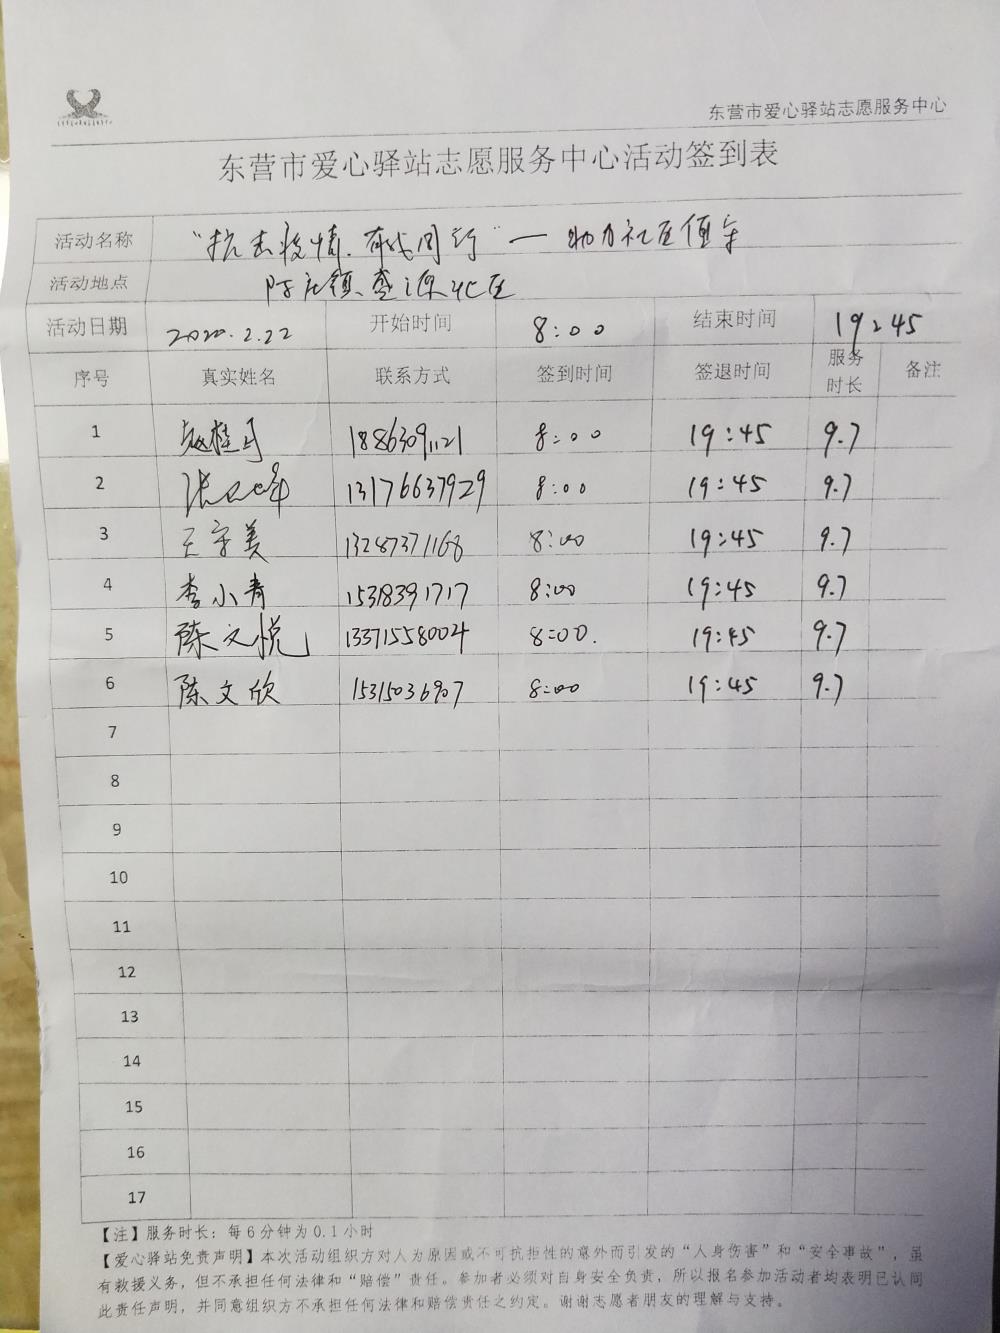 东营市爱心驿站志愿服务中心
东营市爱心驿站志愿服务中心活动签到表
活动名称 “抗击疫情.有我同行”一助力社区值守
活动地点 陈庄镇、盛源北区
活动日期 2020.2.22 开始时间 8:00 结束时间 19:45
序号 真实姓名 联系方式 签到时间 签退时间 服务时长 备注
1 赵桂 18863091121 8:00 19:45 9.7
2 张 峰 13176637929 8:00 19:45 9.7
3 王守美 13287371168 8:00 19:45 9.7
4 李小青 15318391717 8:00 19:45 9.7
5 陈文悦 13371558004 8:00. 19:45 9.7
6 陈文欣 15315036907 8:00 19:45 9.7
7
8
9
10
11
12
13
14
15
16
17
【注】服务时长：每6分钟为0.1小时
【爱心驿站免责声明】本次活动组织方对人为原因或不可抗拒性的意外而引发的“人身伤害”和“安全事故”，虽
有救援义务，但不承担任何法律和“赔偿”责任。参加者必须对自身安全负责，所以报名参加活动者均表明已认同
此责任声明，并同意组织方不承担任何法律和赔偿责任之约定。谢谢志愿者朋友的理解与支持。